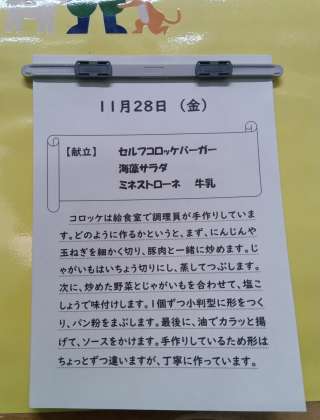 11月28日（金）
【献立】 セルフコロッケバーガー
海藻サラダ
ミネストローネ 牛乳
コロッケは給食室で調理員が手作りしていま
す。どのように作るかというと、まず、にんじんや
玉ねぎを細かく切り、豚肉と一緒に炒めます。じ
ゃがいもはいちょう切りにし、蒸してつぶします。
次に、炒めた野菜とじゃがいもを合わせて、塩こ
しょうで味付けします。1個ずつ小判型に形をつく
り、パン粉をまぶします。最後に、油でカラッと揚
げて、ソースをかけます。手作りしているため形は
ちょっとずつ違いますが、丁寧に作っています。